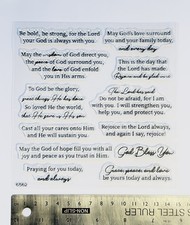 Be bold, be strong, for the Lord
your God is always with you.
May God's love surround
you and your family today,
and every day
May the wisdom of God direct you,
the peace of God surround you,
and the love of God enfold
you in His arms.
This is the day that
the Lord has made.
Rejoice and be glad in it
To God be the glory,
great things He has done
So loved He the world
that He gave us His Son
The Lord has said:
Do not be afraid, for I am
with you. I will strengthen you,
help you, and protect you
Cast all your cares onto Him
and He will sustain you
Rejoice in the Lord always,
and again I say, rejoice!
May the God of hope fill you with all
joy and peace as you trust in Him.
God Bless You
Praying for you today,
and always
Grace, peace and love
be yours today and always.
6962
STEEL RULER
NON-SLIP